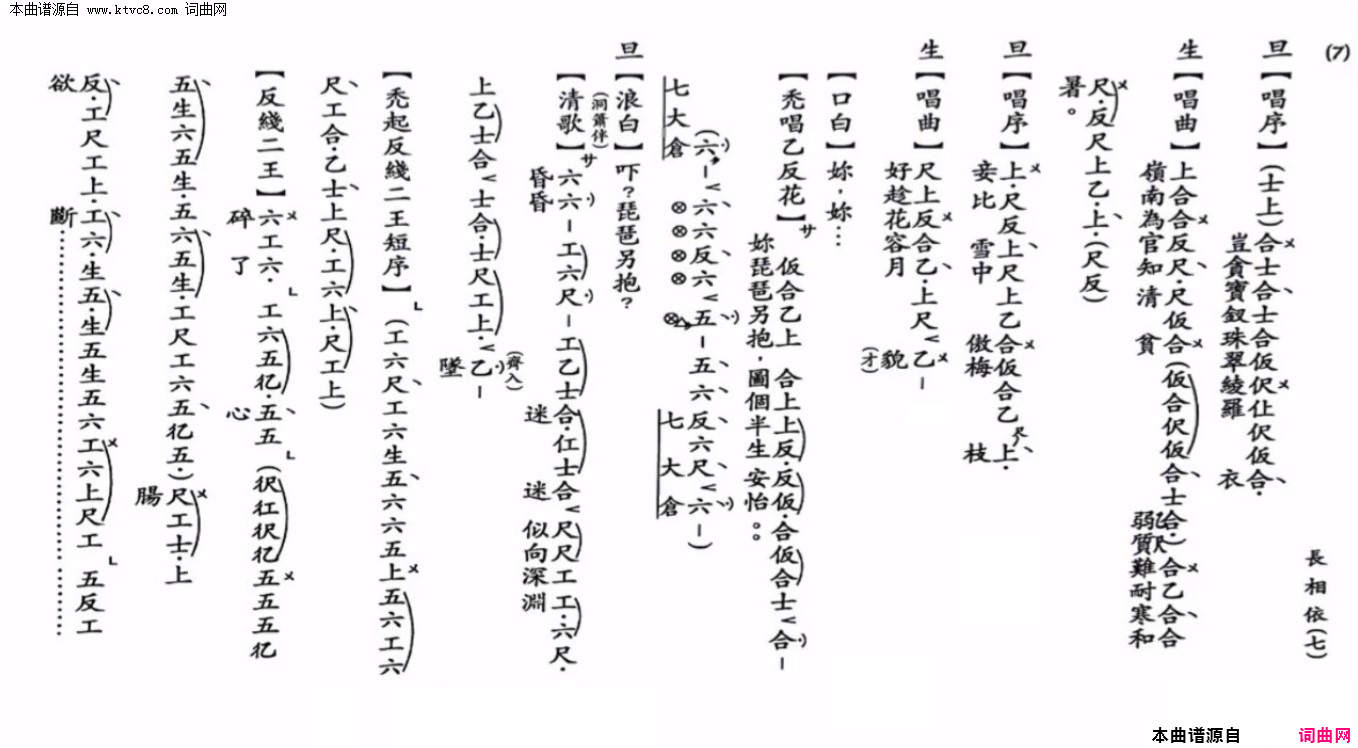 本曲谱源自 www.ktvc8.com 词曲网
(7)
長相依(七)
旦【唱序】(士上)合士合士合仮伬仩伬仮合·
豈貪寶釵珠翠綾羅衣
生【唱曲】上合合反尺·尺仮合(仮合伬仮合士合·)合乙合合
嶺南為官知清貧 弱質難耐寒和
尺·反尺上乙·上·(尺反)
暑。
旦【唱序】上·尺反上尺上乙合仮合乙上·
妾比雪中傲梅枝
生【唱曲】尺上反合乙·上尺乙—
好趁花容月貌(才)
【口白】妳,妳…
【禿唱乙反花】サ仮合乙上 合上上反·反仮·合仮合士合—
妳琵琶另抱,圖個半生安怡。。
(六—六六反六五—五六反六尺六—)
七大倉⊗⊗⊗⊗⊗ 七大倉
旦【浪白】吓?琵琶另抱?
(洞簫伴)
【清歌】サ六六—工六尺—工乙士合·仜士合尺尺工工·六尺·
昏昏迷迷似向深淵
上乙士合士合·士尺工上·乙—
墜(齊入)
【禿起反綫二王短序】(工六尺工六生五六六五上五六工六
尺工合·乙士上尺工六上·尺工上)
【反綫二王】六工六·工六五亿·五五(伬仜伬亿五五五亿
碎了心
五生六五生·五六五生·工尺工六五亿五·)尺工士·上
腸
反·工尺工上·工六·生五·生五生五六工六上尺工 五反工
欲斷……………………
本曲谱源自 词曲网